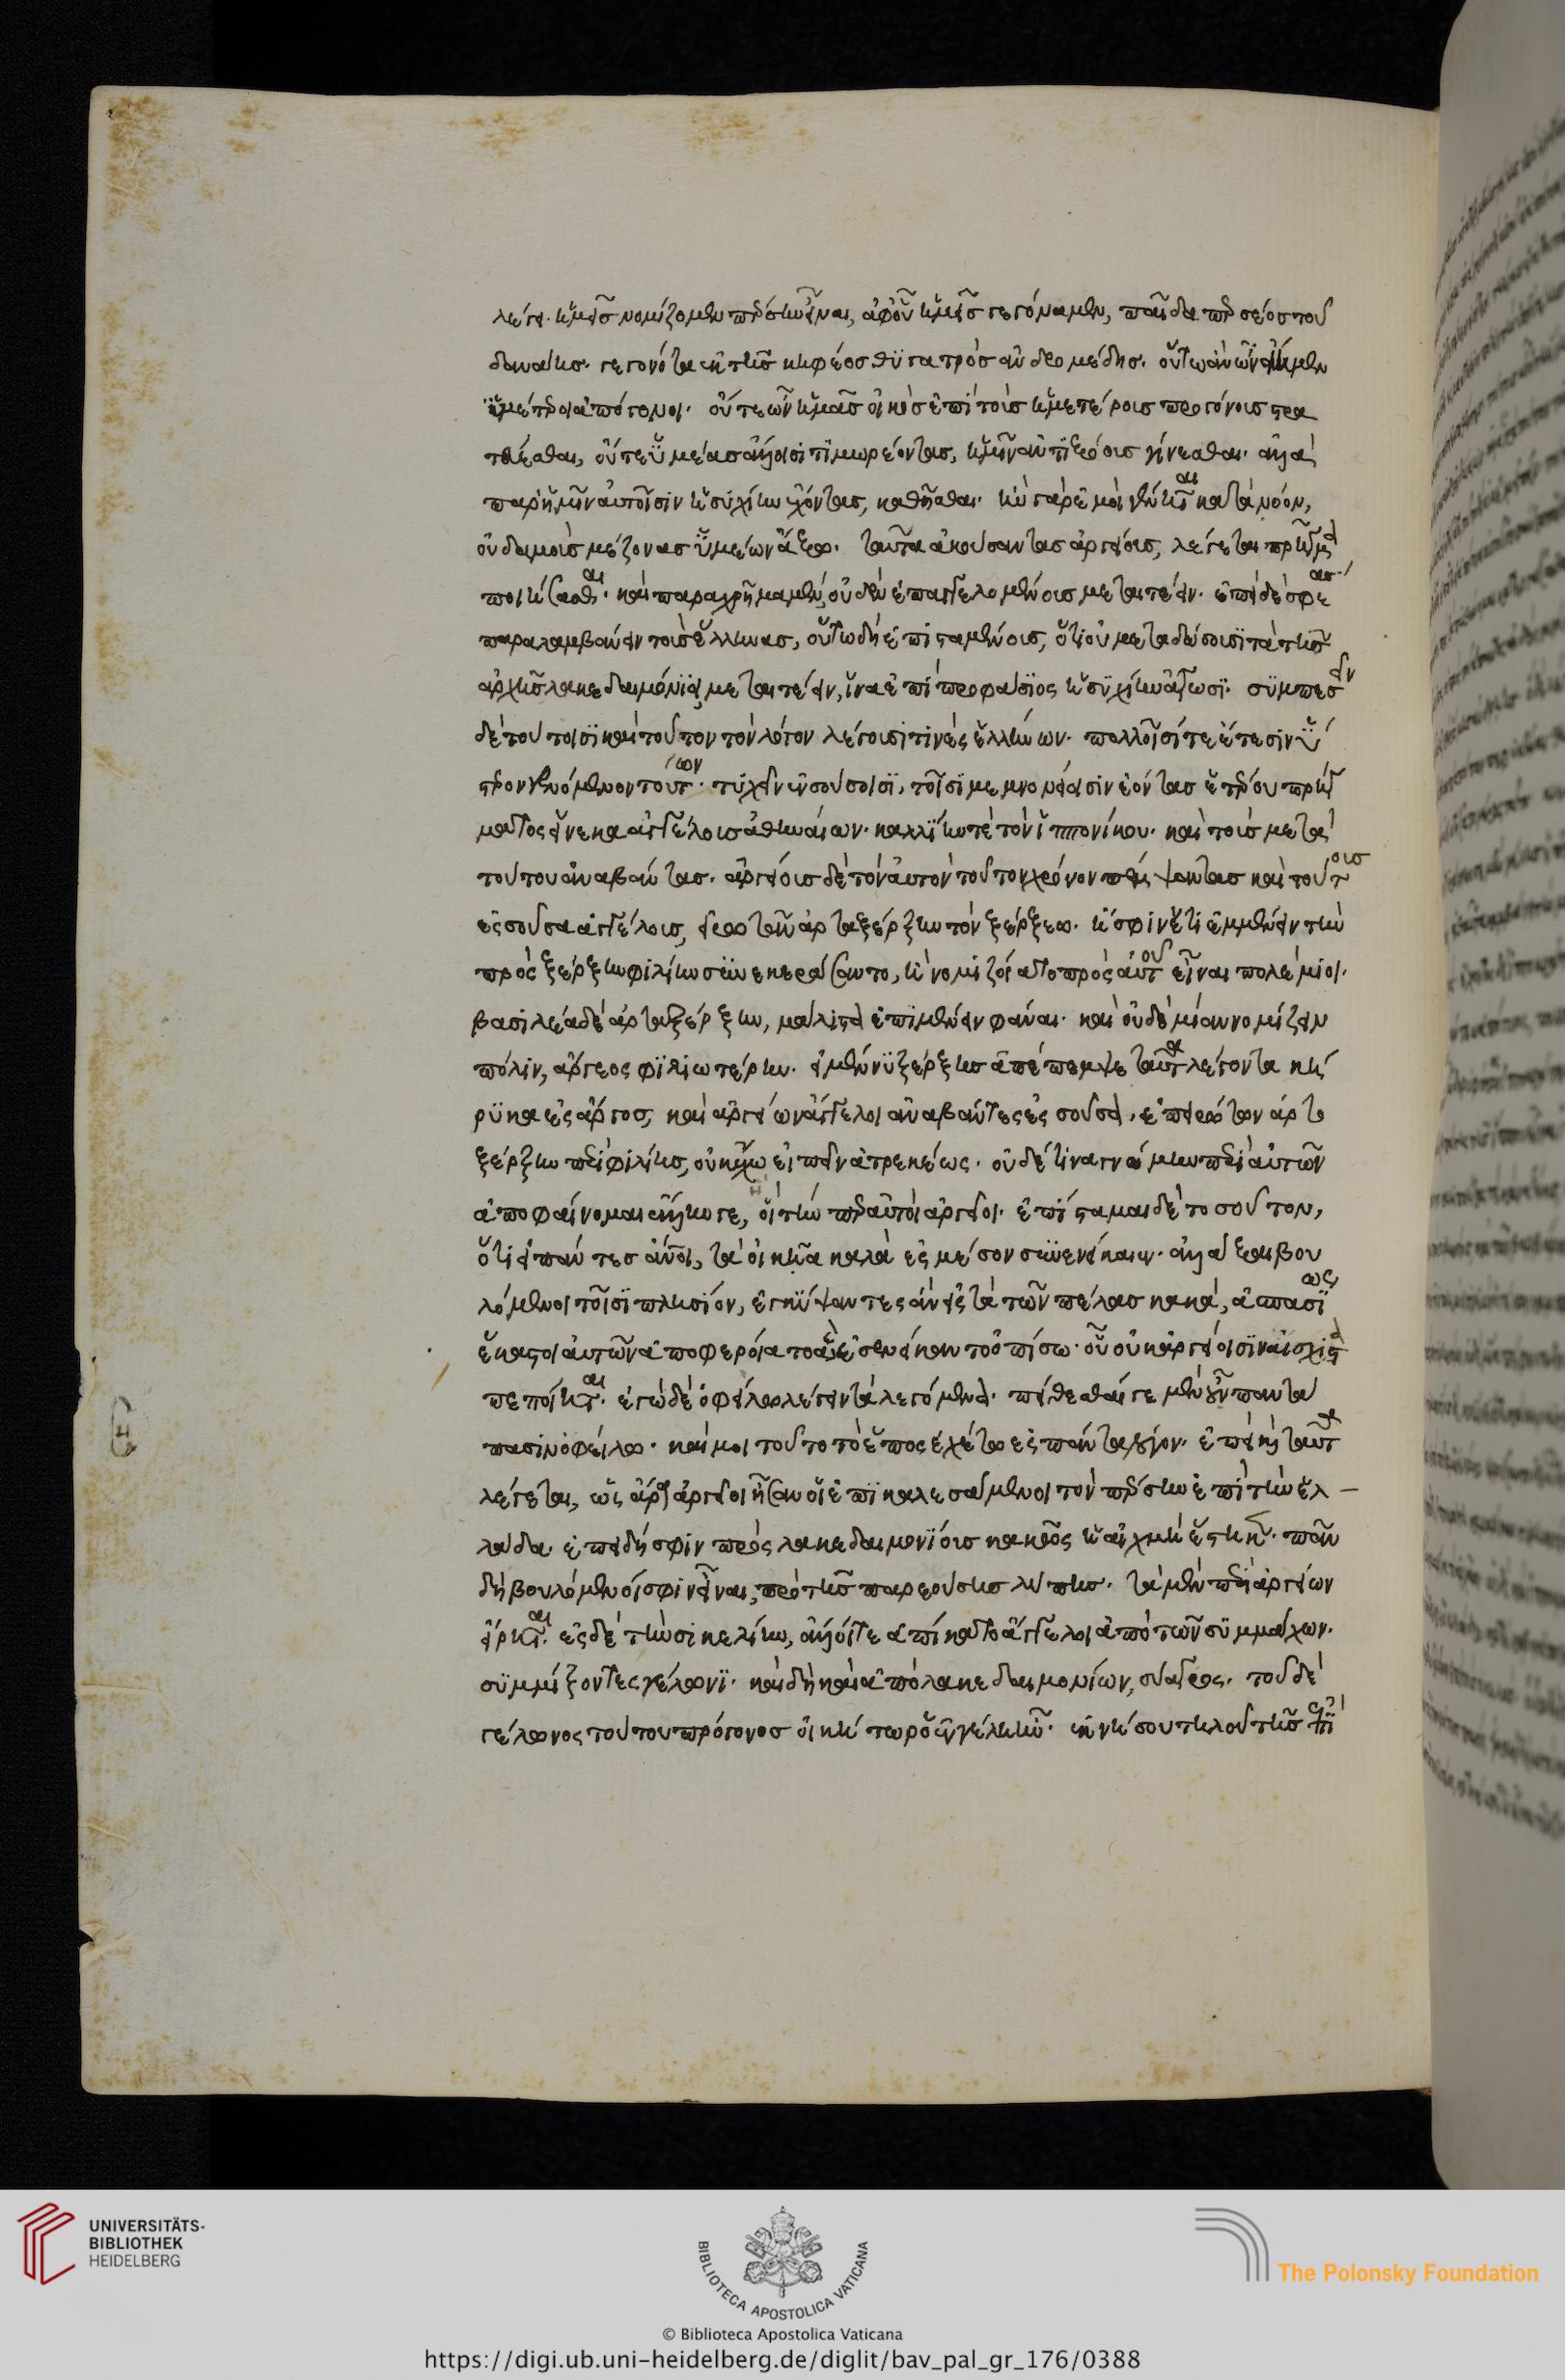 λέγει. ἡμεῖς νομίζομεν πέρσην εἶναι, ἀφ' οὗ ἡμεῖς γεγόναμεν, παῖδα περσέος τοῦ
δανάης. γεγονότα ἐκ τῆς κηφέος θυγατρὸς ἀνδρομέδης. οὕτω ἂν ὦν εἴημεν
ὑμέτεροι ἀπόγονοι. οὔτε ὦν ἡμᾶς οἰκὸς ἐπὶ τοὺς ἡμετέρους προγόνους στρα
τεύεσθαι, οὔτε ὑμέας ἄλλοισι τιμωρέοντας, ἡμῖν ἀντιξόους γίνεσθαι. ἀλλὰ
παρ' ἡμῖν αὐτοῖσιν ἡσυχίην ἔχοντας, καθῆσθαι. ἢν γὰρ ἐμοὶ γένηται κατὰ νόον,
οὐδαμοὺς μέζονας ὑμέων ἄξω. ταῦτα ἀκούσαντας ἀργείους, λέγεται πρῆγμα
ποιήσασθαι. καὶ παραχρῆμα μὲν, οὐδὲν ἐπαγγελομένους μεταιτέειν. ἐπεὶ δὲ σφεας
παραλαμβάνειν τοὺς ἕλληνας, οὕτω δὴ ἐπισταμένους, ὅτι οὐ μεταδώσουσι τὰ τῆς
ἀρχῆς λακεδαιμόνιοι, μεταιτέειν, ἵνα ἐπὶ προφάσιος ἡσυχίην ἄγωσι. συμπεσεῖν
δὲ τούτοισι καὶ τοῦτον τὸν λόγον λέγουσι τινὲς ἑλλήνων. πολλοῖσί τε ἔτεσιν ὕ
στερον γενόμενον τούτων. τυχεῖν ἐν σούσοισι, τοῖσι μεμνονείοισιν ἐόντας ἑτέρου πρήγ
ματος εἵνεκα ἀγγέλους ἀθηναίων. καλλίην τὲ τὸν ἱππονίκου. καὶ τοὺς μετὰ
τούτου ἀναβάντας. ἀργείους δὲ τὸν αὐτὸν τοῦτον χρόνον πέμψαντας καὶ τούτους
ἐς σοῦσα ἀγγέλους, εἰρωτᾶν ἀρταξέρξην τὸν ξέρξεω. ἤ σφιν ἔτι ἐμμένειν τὴν
πρὸς ξέρξην φιλίην συνεκεράσαντο, ἢ νομιζοίατο πρὸς αὐτοῦ εἶναι πολέμιοι.
βασιλέα δὲ ἀρταξέρξην, μάλιστα ἐπιμένειν φάναι. καὶ οὐδεμίαν νομίζειν
πόλιν, ἄργεος φιλιωτέρην. εἰ μέν νυ ξέρξης ἀπέπεμψε ταῦτα λέγοντα κή
ρυκα ἐς ἄργος, καὶ ἀργείων ἄγγελοι ἀναβάντες ἐς σοῦσα, ἐπειρώτων ἀρτα
ξέρξην περὶ φιλίης, οὐκ ἔχω εἰπεῖν ἀτρεκέως. οὐδέ τινα γνώμην περὶ αὐτῶν
ἀποφαίνομαι ἄλλην γε, ἢ τήν περ αὐτοὶ ἀργεῖοι. ἐπίσταμαι δὲ τοσοῦτον,
ὅτι εἰ πάντες ἄνοι, τὰ οἰκῆα κακὰ ἐς μέσον συνενείκαιεν. ἀλλάξασθαι βου
λόμενοι τοῖσι πλησίον, ἐγκύψαντες ἂν ἐς τὰ τῶν πέλας κακὰ, ἀσπασίως
ἕκαστοι αὐτῶν ἀποφεροίατο τὰ ἐσενείκαντο ὀπίσω. οὕτω οὐκ ἀργείοισιν αἴσχιστα
πεποίηται. ἐγὼ δὲ ὀφείλω λέγειν τὰ λεγόμενα. πείθεσθαί γε μὲν οὖν παντα
πασιν ὀφείλω. καί μοι τοῦτο τὸ ἔπος ἐχέτω ἐς πάντα λόγον. ἐπεὶ καὶ ταῦτα
λέγεται, ὡς ἄρα ἀργεῖοι ἦσαν οἱ ἐπικαλεσάμενοι τὸν πέρσην ἐπὶ τὴν ἑλ
λάδα. ἐπειδή σφιν πρὸς λακεδαιμονίους κακῶς ἡ αἰχμὴ ἑστήκη. πᾶν
δὴ βουλόμενοι σφιν εἶναι, πρὸ τῆς παρεούσης λύπης. τὰ μὲν περὶ ἀργείων
εἴρηται. ἐς δὲ τὴν σικελίην, ἄλλοι τε ἀπίκατο ἄγγελοι ἀπὸ τῶν συμμάχων.
συμμίξοντες γέλωνι. καὶ δὴ καὶ ἀπὸ λακεδαιμονίων, σύαγρος. τοῦ δὲ
γέλωνος τούτου πρόγονος οἰκήτωρ ὁ ἐν γέλη ἦν. ἐκ νήσου τήλου τῆς ἐπὶ
UNIVERSITÄTS-
BIBLIOTHEK
HEIDELBERG
BIBLIOTECA APOSTOLICA VATICANA
The Polonsky Foundation
© Biblioteca Apostolica Vaticana
https://digi.ub.uni-heidelberg.de/diglit/bav_pal_gr_176/0388